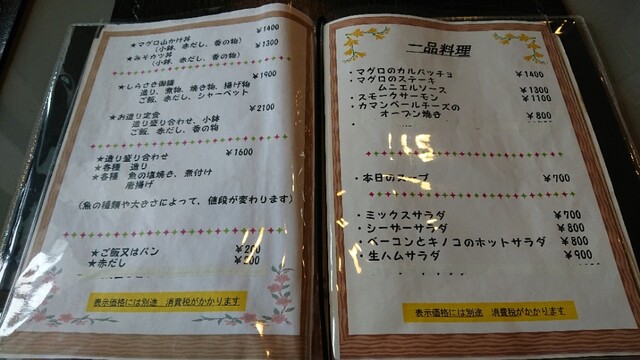 ★マグロ山かけ丼 ¥1400
(小鉢、赤だし、香の物)
★みそカツ丼 ¥1300
(小鉢、赤だし、香の物)
★しらさぎ御膳 ¥1900
造り、煮物、焼き物、揚げ物
ご飯、赤だし、シャーベット
★お造り定食 ¥2100
造り盛り合わせ、小鉢
ご飯、赤だし、香の物
★造り盛り合わせ ¥1600
★各種 造り
★各種 魚の塩焼き、煮付け
唐揚げ
(魚の種類や大きさによって、値段が変わります)
★ご飯又はパン ¥200
★赤だし
表示価格には別途 消費税がかかります
一品料理
・マグロのカルパッチョ ¥1400
・マグロのステーキ
ムニエルソース ¥1300
・スモークサーモン ¥1100
・カマンベールチーズの
オーブン焼き ¥800
・本日のスープ ¥700
・ミックスサラダ ¥700
・シーザーサラダ ¥800
・ベーコンとキノコのホットサラダ ¥800
・生ハムサラダ ¥900
表示価格には別途 消費税がかかります